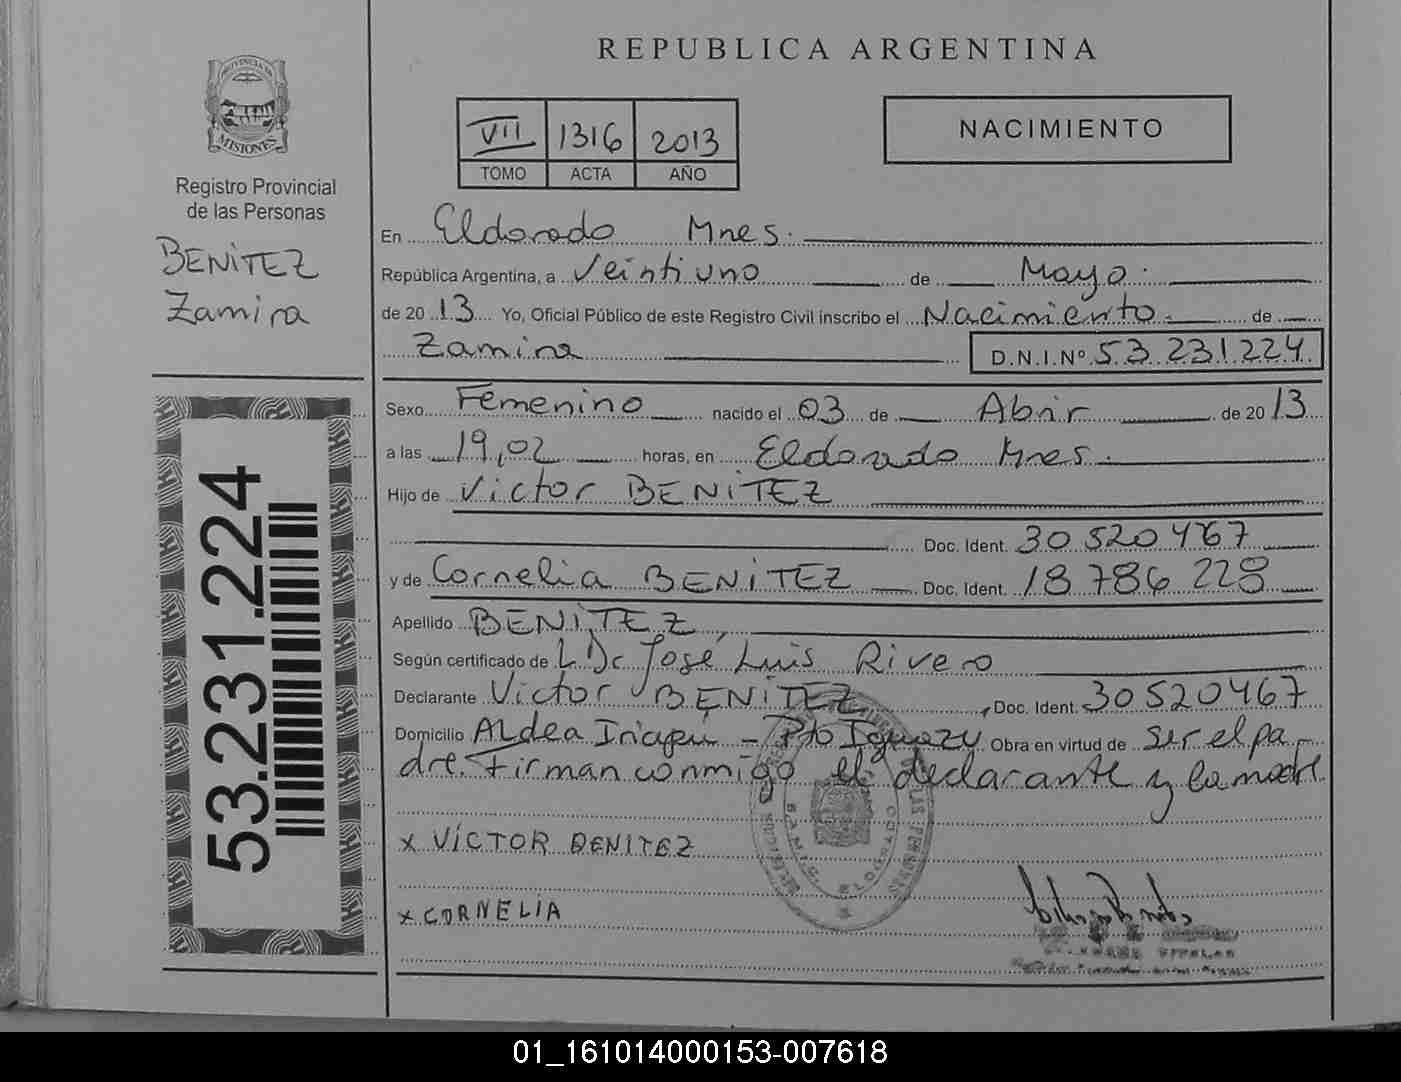 REPUBLICA ARGENTINA
PROVINCIA DE
MISIONES
Registro Provincial
de las Personas
BENITEZ
Zamira
53.231.224
VII 1316 2013
TOMO ACTA AÑO
NACIMIENTO
En Eldorado Mnes.
República Argentina, a Veintiuno de Mayo.
de 20 13 Yo, Oficial Público de este Registro Civil inscribo el Nacimiento. de
Zamira D.N.I.Nº 53.231.224
Sexo Femenino nacido el 03 de Abril de 20 13
a las 19,02 horas, en Eldorado Mnes.
Hijo de Victor BENITEZ
Doc. Ident. 30520467
y de Cornelia BENITEZ Doc. Ident. 18786228
Apellido BENITEZ
Según certificado de L Dr José Luis Rivero
Declarante Victor BENITEZ, Doc. Ident. 30520467
Domicilio Aldea Iriapú - Pto Iguazu Obra en virtud de ser el pa-
dre. Firman conmigo el declarante y la madre
x VÍCTOR BENITEZ
x CORNELIA
ELDORADO
TITULAR
01_161014000153-007618